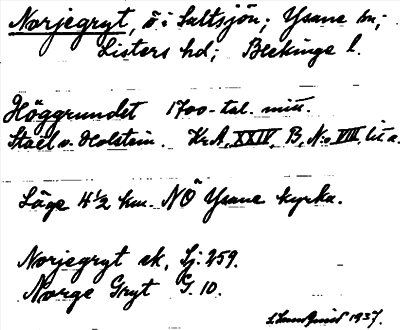 Norjegryt, ö i Saltsjön; Ysane sn;
Listers hd; Blekinge l.
Höggrundet 1700-tal. mitt.
Stael v. Holstein. Kr.A. XXIV, B, N:o VIII, lit a.
Läge 4 1/2 km. NÖ Ysane kyrka.
Norjegryt ek, Sj. 259.
Norge Gryt G. 10.
S. Lundquist 1937.